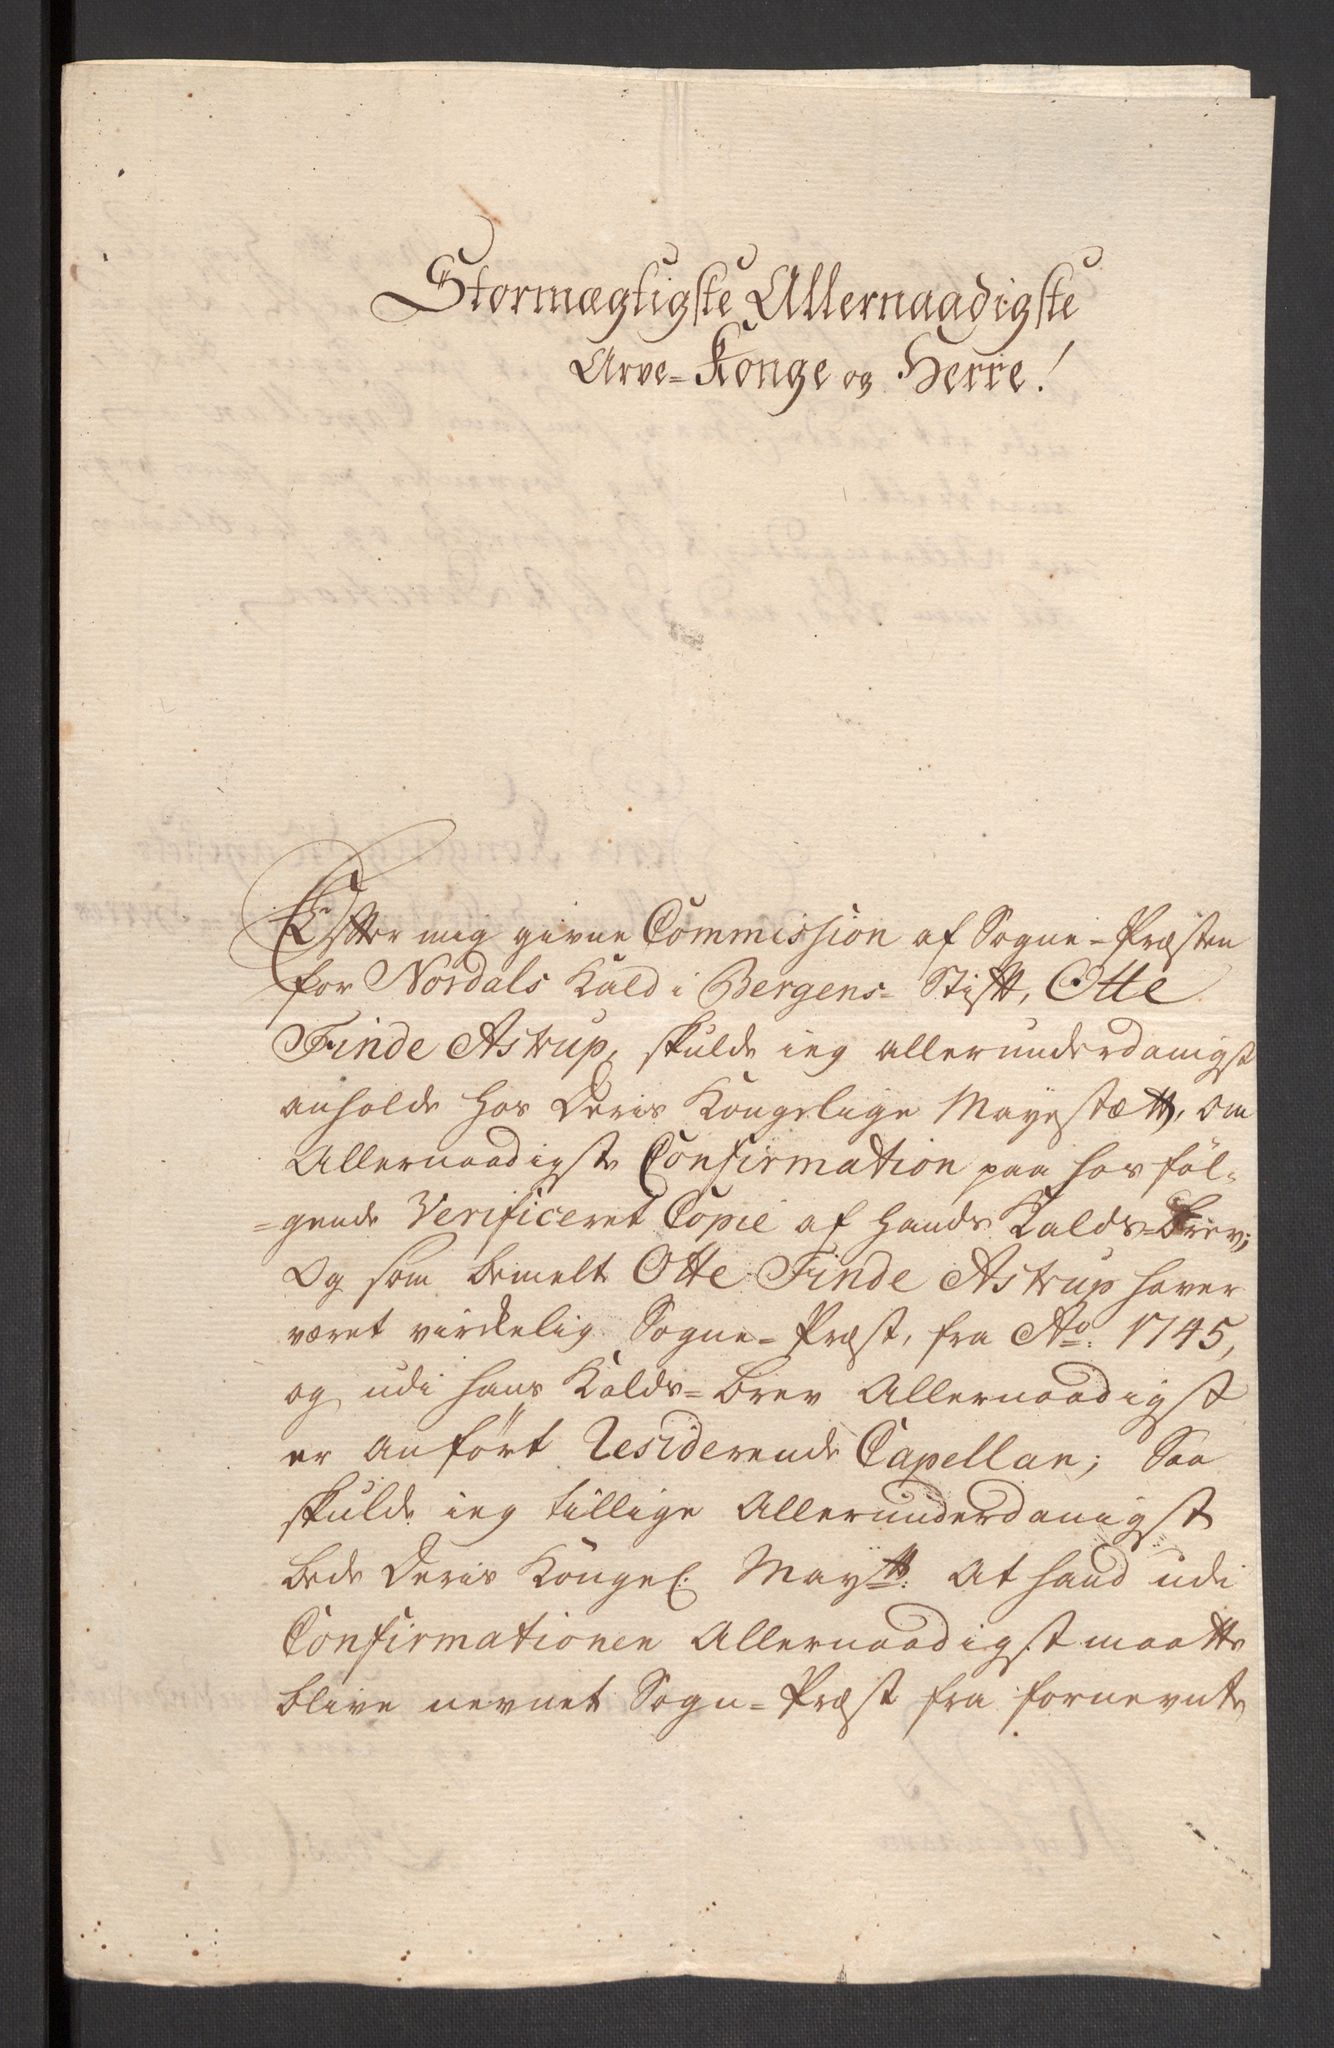 Stormægtigste Allernaadigste
Arve-Konge og Herre!
Efter mig givne Commission af Sogne-Præsten
for Nordals Kald i Bergens-Stift, Otte
Finde Astrup, skulde ieg allerunderdanigst
anholde hos Deris Kongelige Mayestætt, om
Allernaadigste Confirmation paa hos föl-
=gende Verificeret Copie af hands Kalds-Brev;
Og som bemelte Otte Finde Astrup haver
været virkelig Sogne-Præst, fra Ao: 1745,
og udi hans Kalds-brev Allernaadigst
er anført Residerende Capellan; Saa
skulde ieg tillige Allerunderdanigst
bede Deris Kongel: Maytt: At hand udi
Confirmationen Allernaadigst maatte
blive nevnet Sogn-Præst fra fornevnte